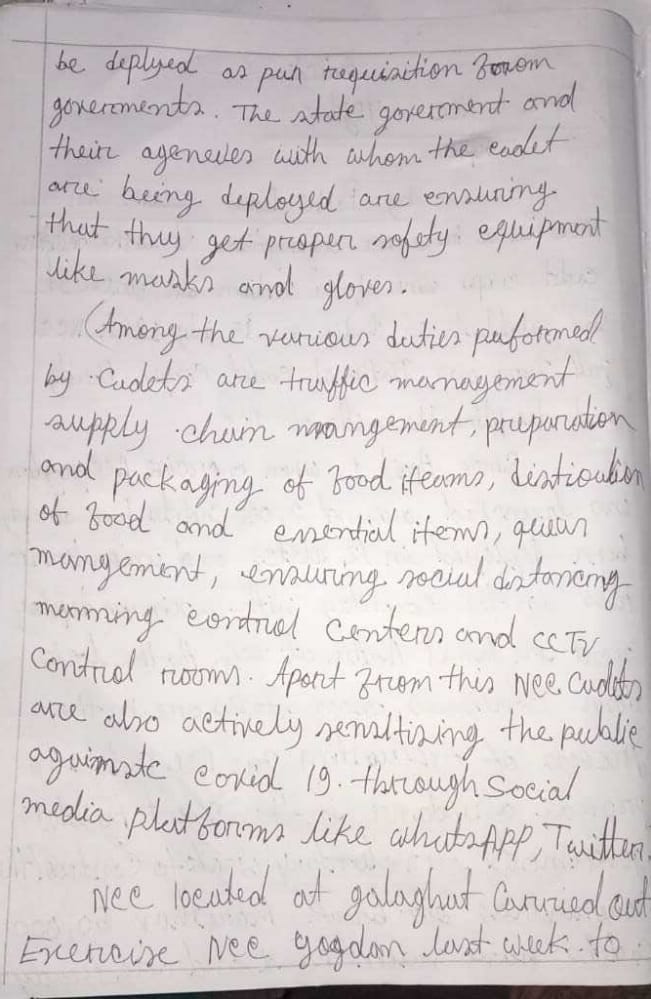 be deplyed as per requisition from
goverments. The state goverment and
their agenevies with whom the cadet
are being deployed are ensuring
that they get proper safety equipment
like masks and gloves.
(Among the various duties peformed
by Cadets are traffic management
supply chain mangement, preparation
and packaging of food iteams, distrioution
of food and essential items, queue
mangement, ensuring social distancing
manning control Centers and CCTV
Control rooms. Apart from this NCC Cadets
are also actively sensitizing the public
against covid 19. through Social
media platforms like whatsApp, Twitter.
NCC located at golaghat Carried out
Exercise NCC yogdan last week to